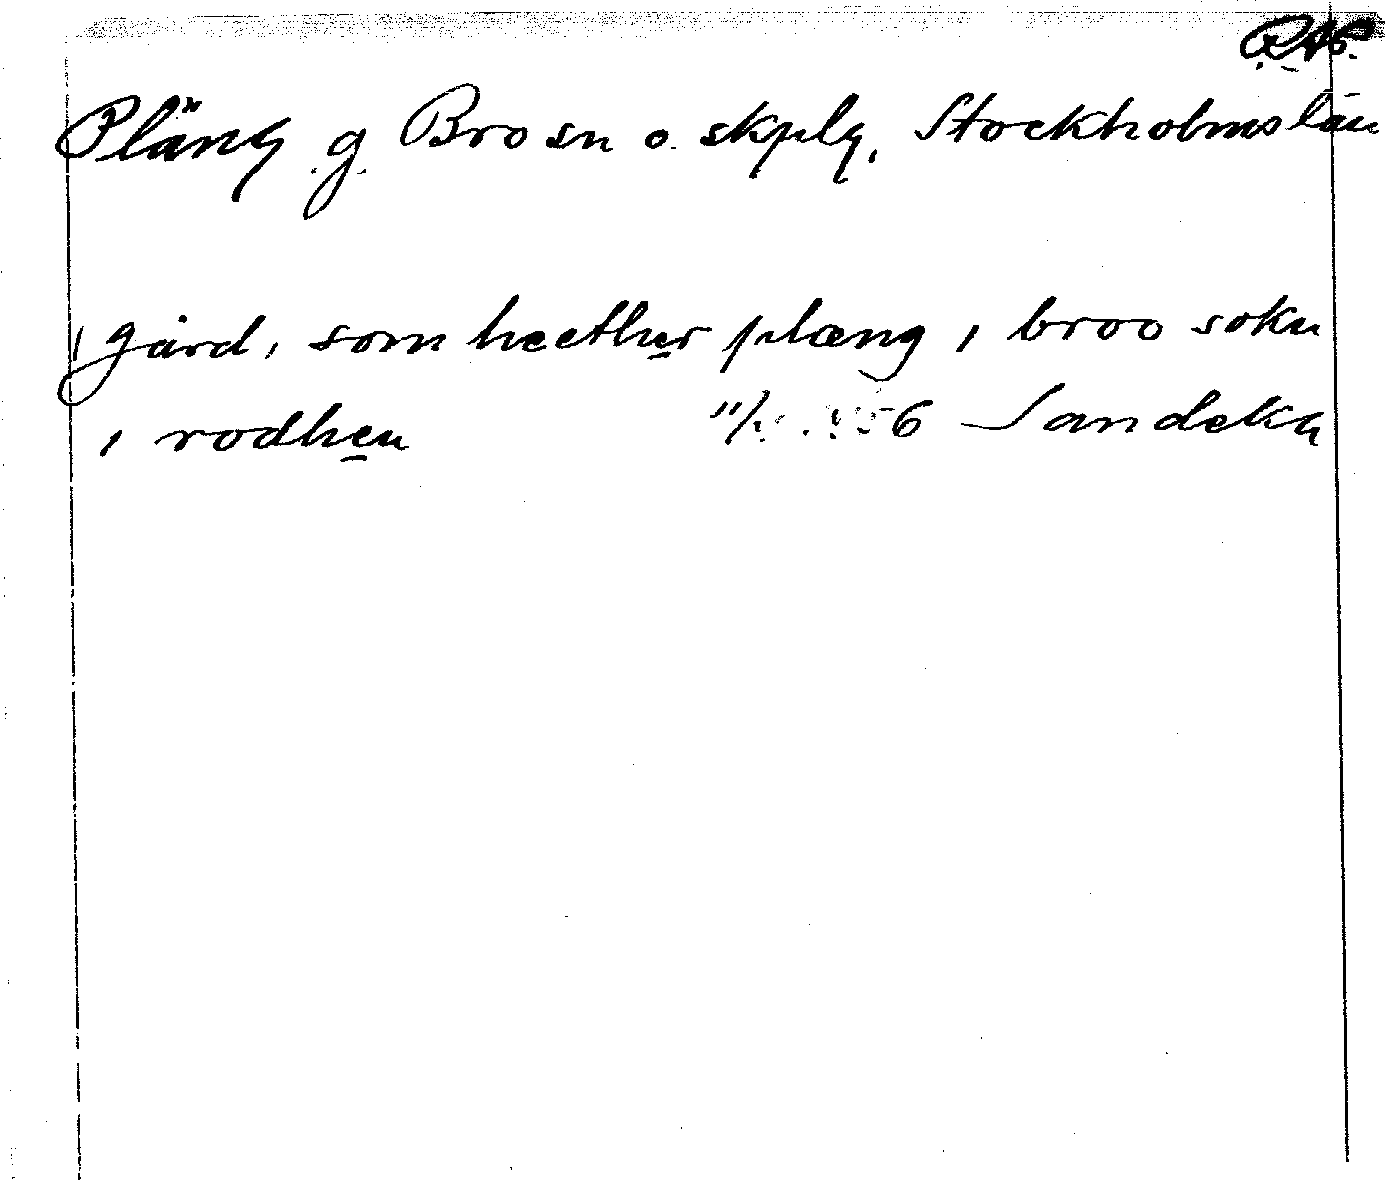 RAp.
Pläng g. Bro sn o. skplg, Stockholms län
i gård, som heether plæng i broo sokn
i rodhen 6 Sandekq